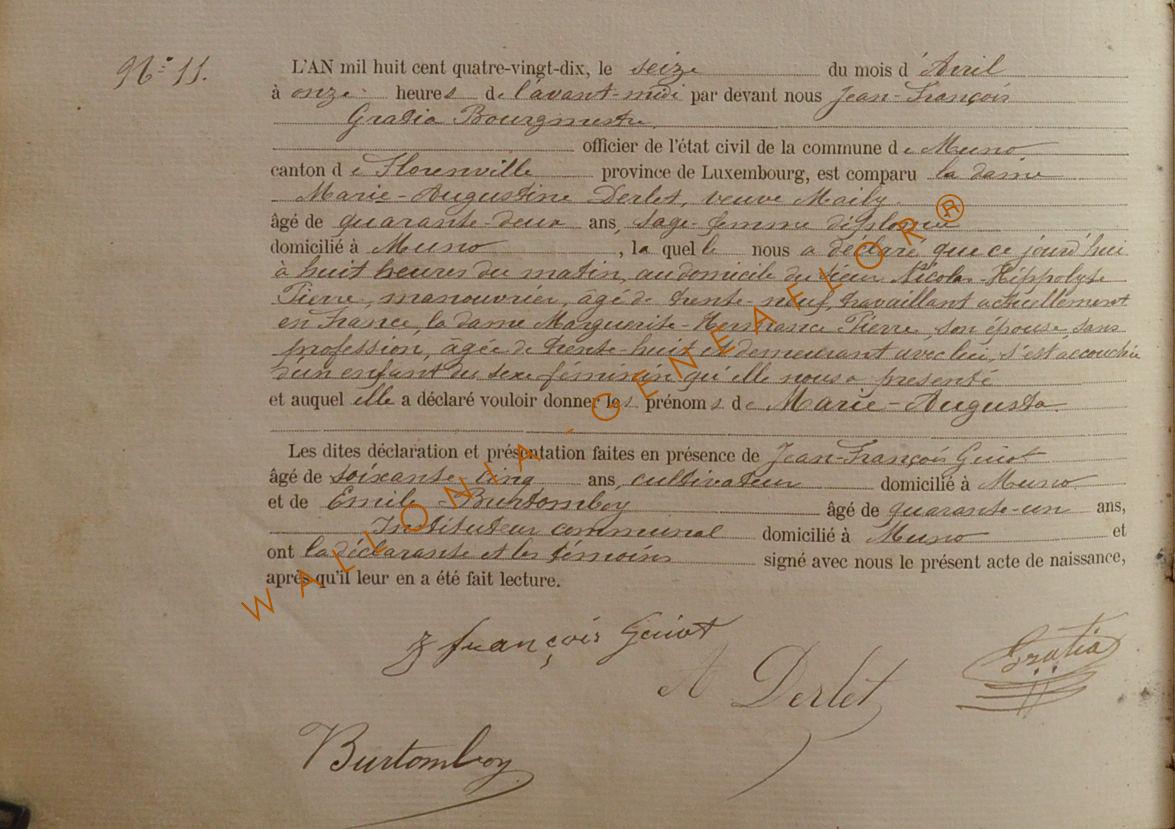 N° 11.
L'AN mil huit cent quatre-vingt-dix, le seize du mois d'Avril
à onze heures de l'avant-midi par devant nous Jean-François
Gratia Bourgmestre,
officier de l'état civil de la commune de Muno
canton de Florenville province de Luxembourg, est comparu la dame
Marie-Augustine Derlet, veuve Maily,
âgé de quarante-deux ans, sage-femme diplômée
domicilié à Muno, laquelle nous a déclaré que ce jourd'hui
à huit heures du matin, au domicile du sieur Nicolas-Hippolyte
Pierre, manouvrier, âgé de trente-neuf, travaillant actuellement
en France, la dame Marguerite-Hortrance Pierre, son épouse, sans
profession, âgée de trente-huit et demeurant avec lui, s'est accouchée
d'un enfant du sexe féminin qu'elle nous a présenté
et auquel elle a déclaré vouloir donner les prénoms de Marie-Augusta.
Les dites déclaration et présentation faites en présence de Jean-François Guiot
âgé de soixante cinq ans, cultivateur domicilié à Muno
et de Emile Burtomboy âgé de quarante-un ans,
Instituteur communal domicilié à Muno et
ont la déclarante et les témoins signé avec nous le présent acte de naissance,
après qu'il leur en a été fait lecture.
J françois Guiot
A Derlet
Gratia
Burtomboy
WALLONIA-GENEAFLOR®